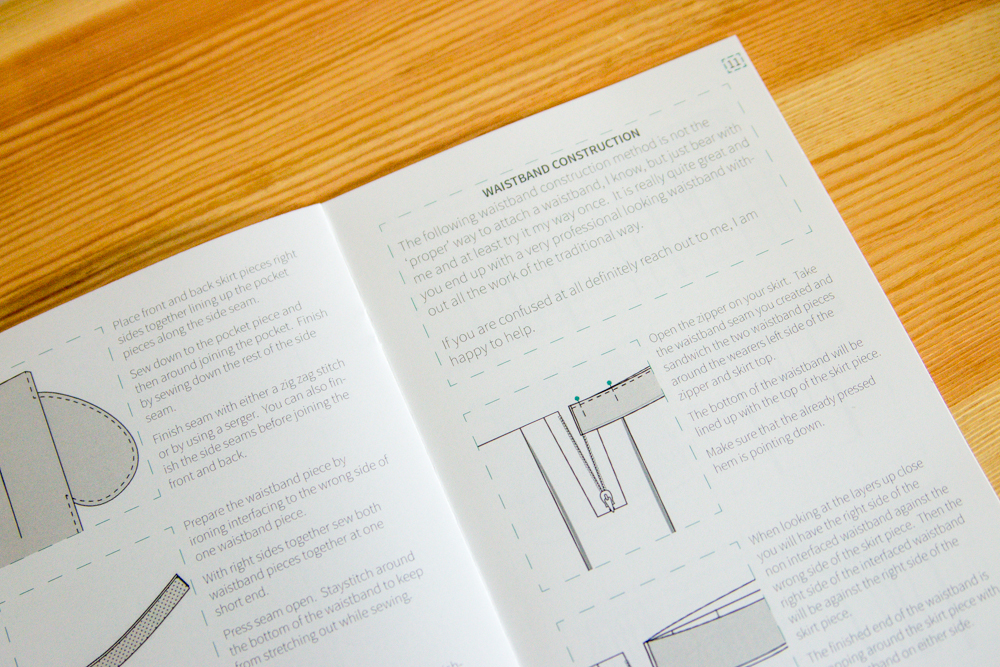 Place front and back skirt pieces right
sides together lining up the pocket
pieces along the side seam.
Sew down to the pocket piece and
then around joining the pocket. Finish
by sewing down the rest of the side
seam.
Finish seam with either a zig zag stitch
or by using a serger. You can also fin-
ish the side seams before joining the
front and back.
Prepare the waistband piece by
ironing interfacing to the wrong side of
one waistband piece.
With right sides together sew both
waistband pieces together at one
short end.
Press seam open. Staystitch around
the bottom of the waistband to keep
from stretching out while sewing.
11
WAISTBAND CONSTRUCTION
The following waistband construction method is not the
'proper' way to attach a waistband, I know, but just bear with
me and at least try it my way once. It is really quite great and
you end up with a very professional looking waistband with-
out all the work of the traditional way.
If you are confused at all definitely reach out to me, I am
happy to help.
Open the zipper on your skirt. Take
the waistband seam you created and
sandwich the two waistband pieces
around the wearers left side of the
zipper and skirt top.
The bottom of the waistband will be
lined up with the top of the skirt piece.
Make sure that the already pressed
hem is pointing down.
When looking at the layers up close
you will have the right side of the
non interfaced waistband against the
wrong side of the skirt piece. Then the
right side of the interfaced waistband
will be against the right side of the
skirt piece.
The finished end of the waistband is
around the skirt piece with
on either side.